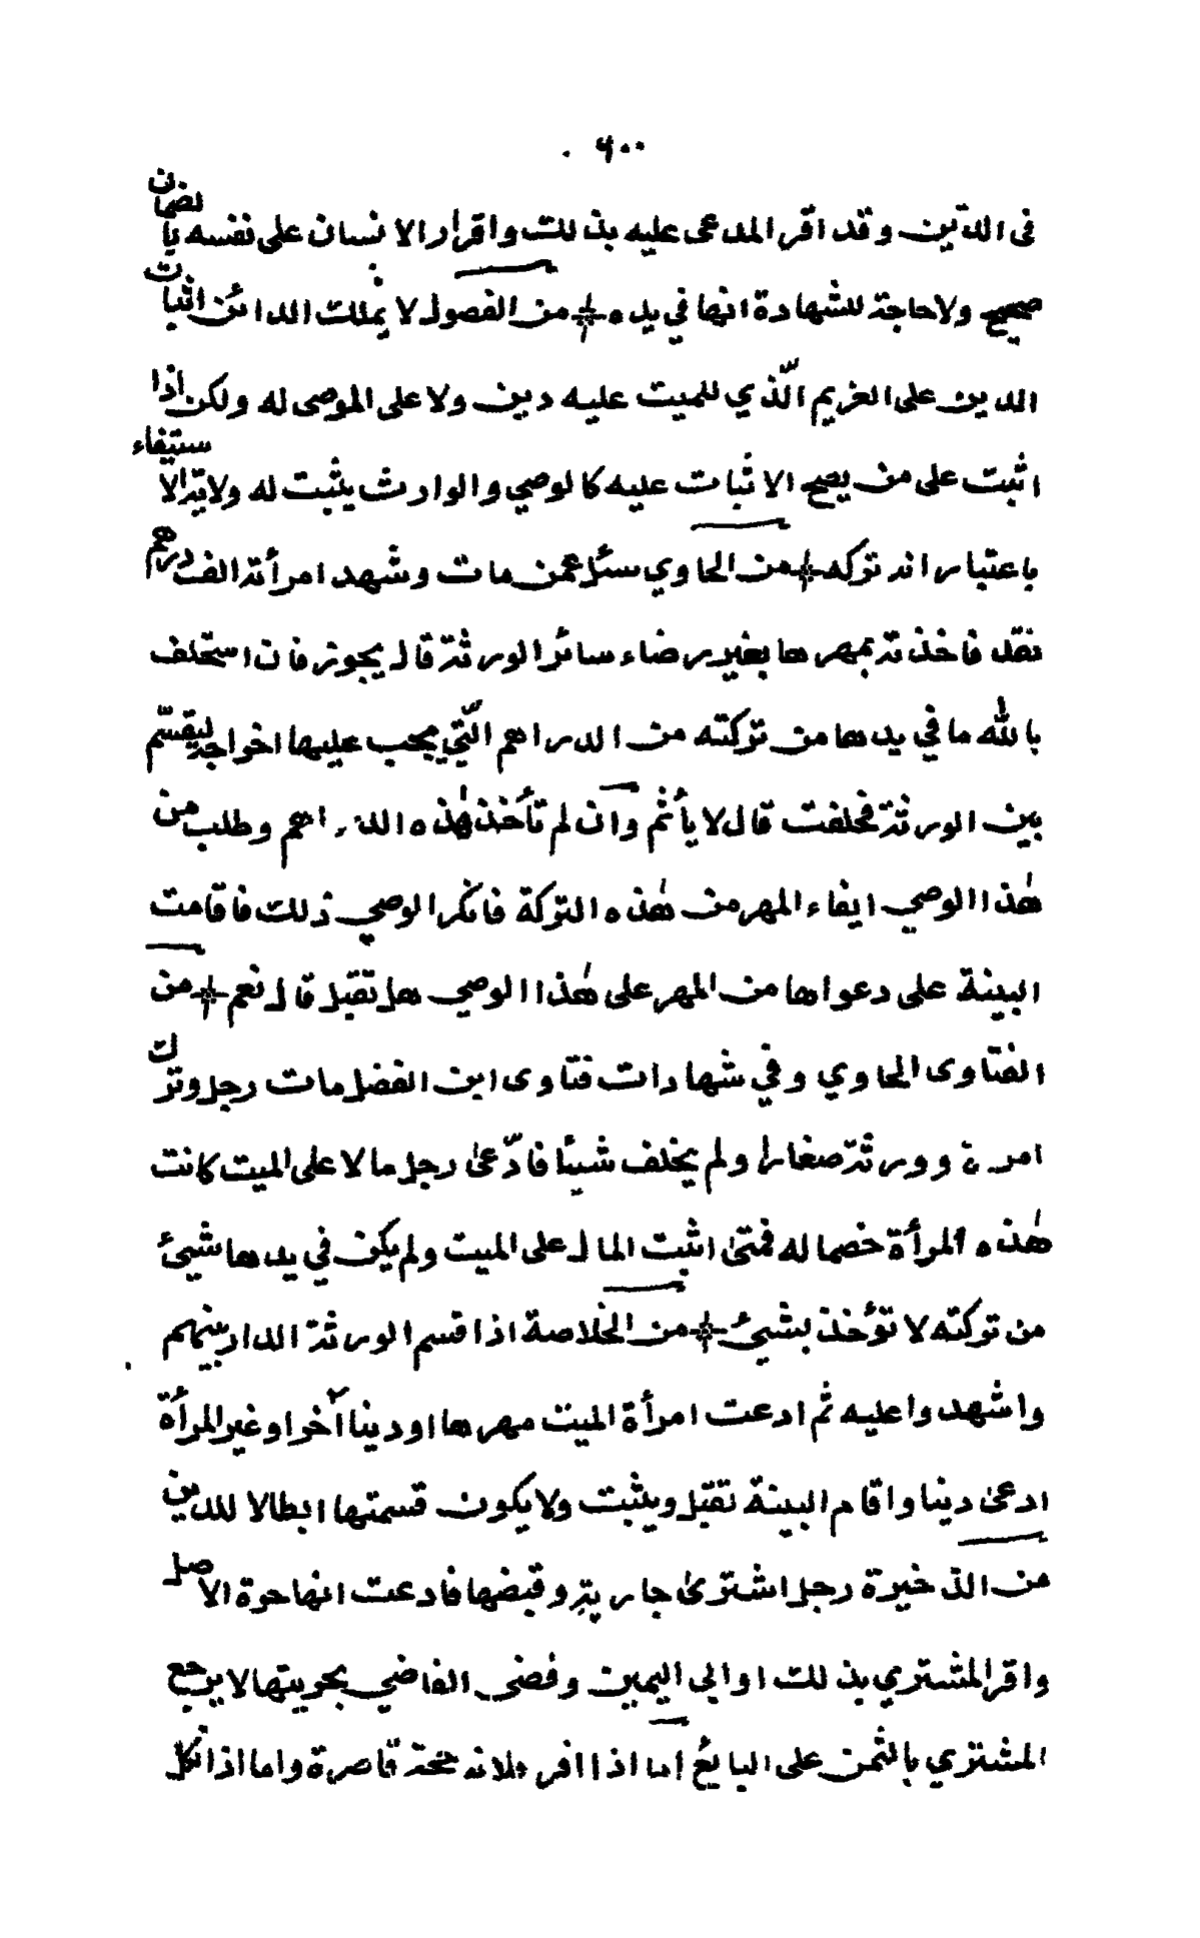 ٦٠٠
في الدّين وقد اقر المدعى عليه بذلك واقرار الانسان على نفسه بالضمان
صحيح ولاحاجة للشهادة انها في يده من الفصول لا يملك الدائن اثبات
الدين على الغريم الّذي للميت عليه دين ولا على الموصى له ولكن اذا
اثبت على من يصح الاثبات عليه كالوصي والوارث يثبت له ولاية الاستيفاء
باعتبار انه تركه من الحاوي سئل عمن مات وشهد امرأته الف درهم
نقد فاخذته بمهرها بغير رضاء سائر الورثة قال يجوز فان استحلف
بالله ما في يدها من تركته من الدراهم الّتي يجب عليها اخراجه ليقسّم
بين الورثة فحلفت قال لا يأثم وان لم تأخذ هذه الدراهم وطلب من
هذا الوصي ايفاء المهر من هذه التركة فانكر الوصي ذلك فاقامت
البينة على دعواها من المهر على هذا الوصي هل تقبل قال نعم من
الفتاوى الحاوي وفي شهادات فتاوى ابن الفضل مات رجل وترك
امرة وورثة صغارا ولم يخلف شيئا فادّعى رجل مالا على الميت كانت
هذه المرأة خصما له فمتى اثبت المال على الميت ولم يكن في يدها شيئ
من تركته لا تؤخذ بشيئ من الخلاصة اذا قسم الورثة الدار بينهم
واشهدوا عليه ثم ادعت امرأة الميت مهرها اودينا آخر او غير المرأة
ادعى دينا واقام البينة تقبل ويثبت ولا يكون قسمتها ابطالا للدين
من الذخيرة رجل اشترى جارية وقبضها فادعت انها حرة الاصل
واقر المشتري بذلك اوابى اليمين وقضى القاضي بحريتها لا يرجع
المشتري بالثمن على البايع اما اذا اقر فلانه حجة قاصرة واما اذا نكل